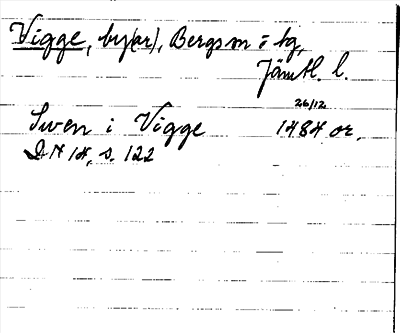 Vigge, by(ar), Bergs sn o tg,
Jämtl. l.
26/12
Swen i Vigge 1484 or.
DN 14, s. 122